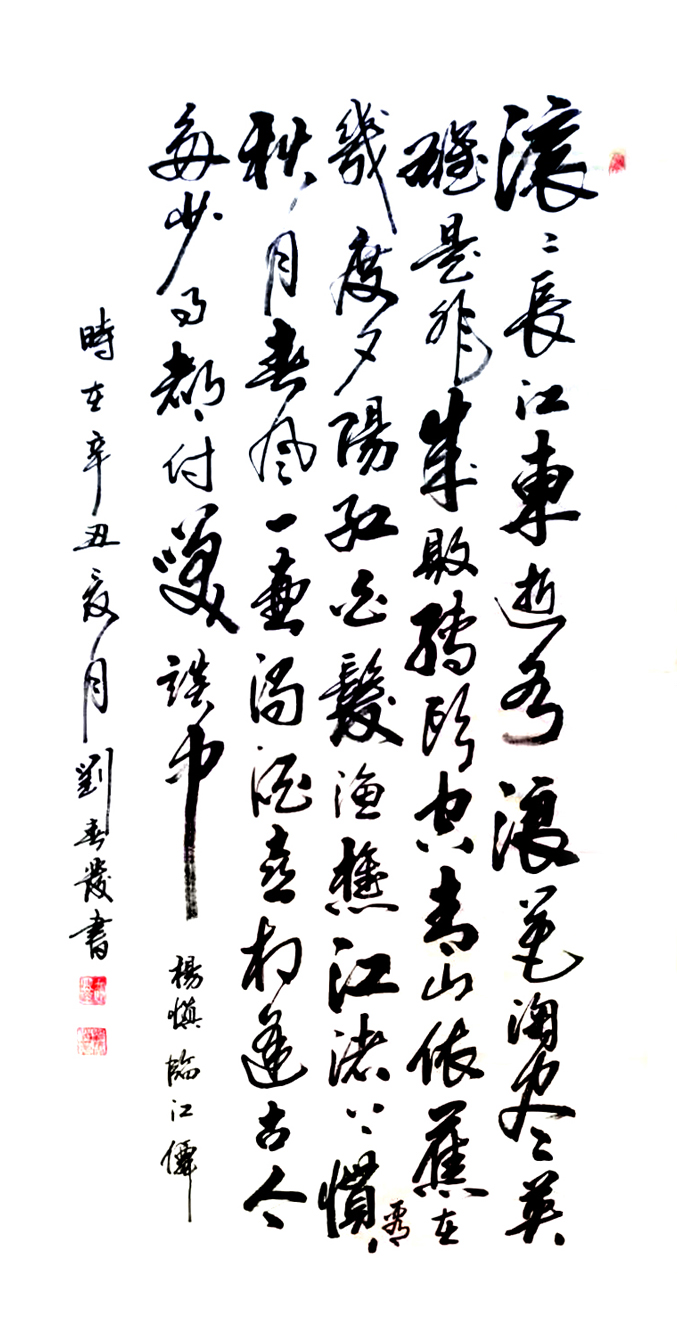 滾〻長江東逝水浪花淘尽英
雄是非成敗轉頭空青山依舊在
幾度夕陽紅白髮漁樵江渚上慣看
秋月春風一壺濁酒喜相逢古今
多少事都付笑談中
楊慎臨江僊
時在辛丑夏月劉春發書